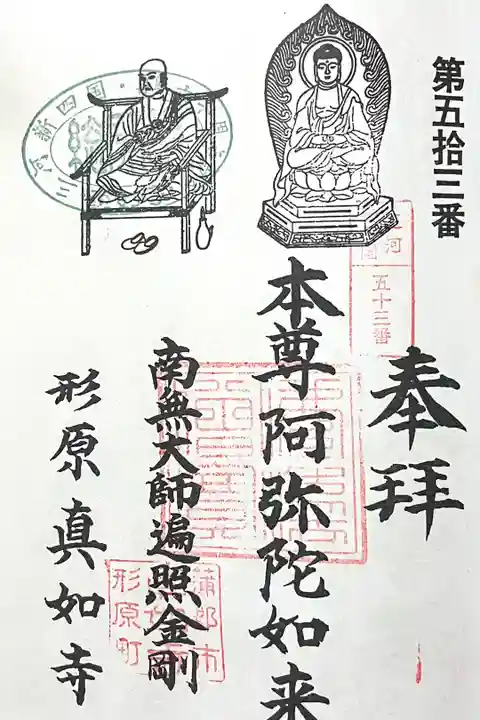 第五拾三番
奉拝
河
五十三番
本尊阿弥陀如来
南無大師遍照金剛
形原真如寺
新四国
三河
蒲郡市
形原町